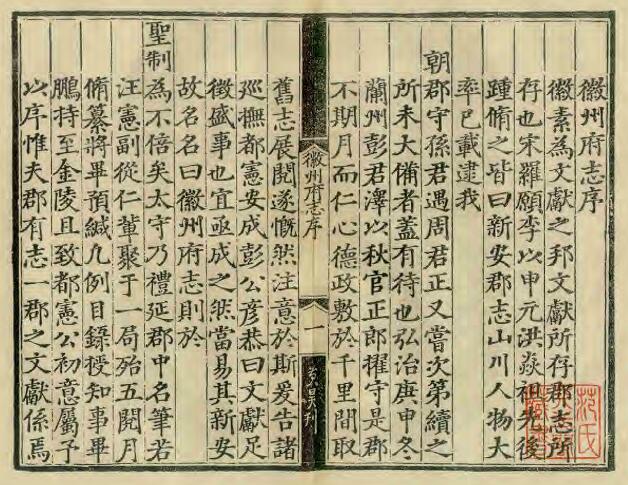 徽州府志序
徽素為文獻之邦文獻所存郡志所
存也宋羅願李以申元洪焱祖先後
踵脩之皆曰新安郡志山川人物大
率已載逮我
朝郡守孫君遇周君正又嘗次第續之
所未大備者蓋有待也弘治庚申冬
蘭州彭君澤以秋官正郎擢守是郡
不期月而仁心德政敷於千里間取
徽州府志序
一
舊志展閱遂慨然注意於斯爰告諸
巡撫都憲安成彭公彥恭曰文獻足
徵盛事也宜亟成之然當易其新安
故名名曰徽州府志則於
聖制
為不倍矣太守乃禮延郡中名筆若
汪憲副從仁輩聚于一局殆五閱月
脩纂將畢預緘凡例目錄授知事畢
鵬持至金陵且致都憲公初意屬予
以序惟夫郡有志一郡之文獻係焉
范氏